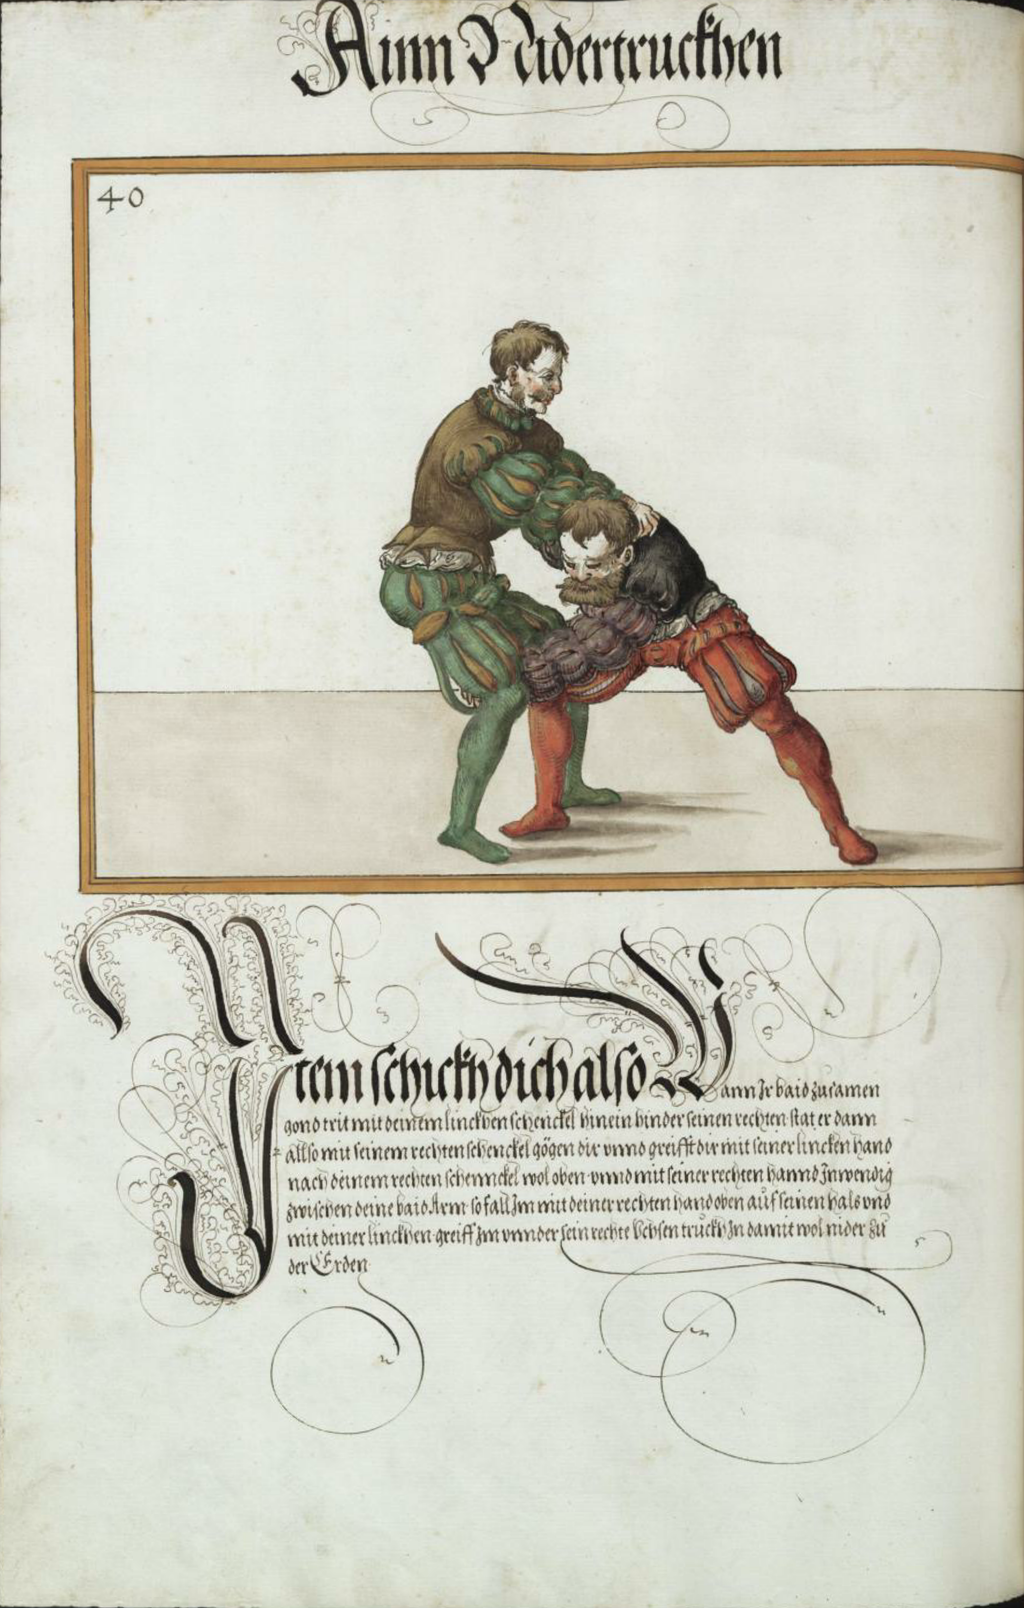 Ainn Nidertruckhen
40
Item schickh dich also Wann Ir baid zusamen
gond trit mit deinem linckhen schenckel hinein hinder seinen rechten stat er dann
allso mit seinem rechten schenckel gögen dir vnnd greifft dir mit seiner lincken hand
nach deinem rechten schennckel wol oben vnnd mit seiner rechten hannd Inwendig
zwischen deine baid Arm so fall Im mit deiner rechten hand oben auf seinen hals vnd
mit deiner linckhen greiff Im vnnder sein rechte Vchsen truckh In damit wol nider zu
der Erden